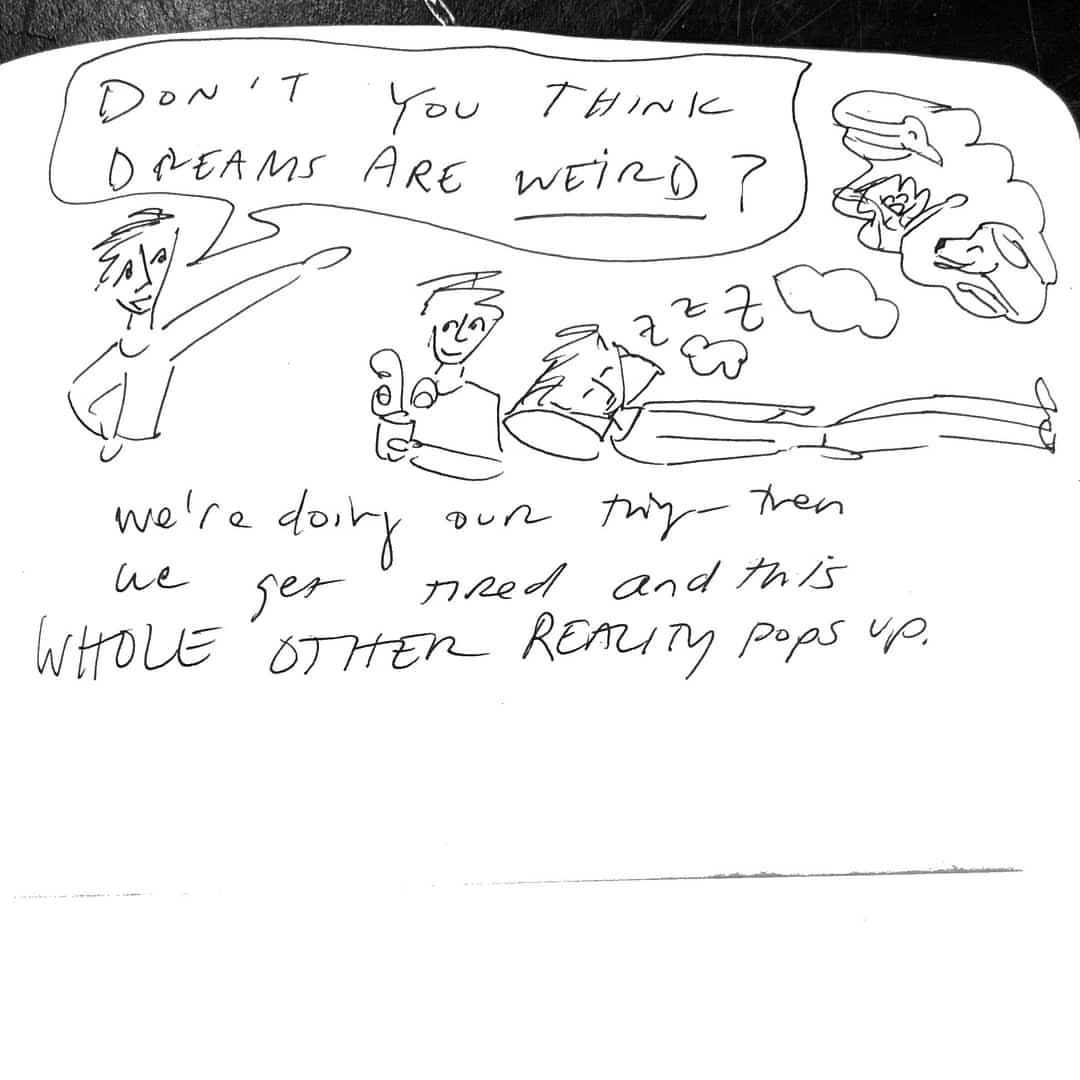 DON'T YOU THINK
DREAMS ARE WEiRD?
z z z
we're doing our thing - then
we get tired and this
WHOLE OTHER REALITY pops up.